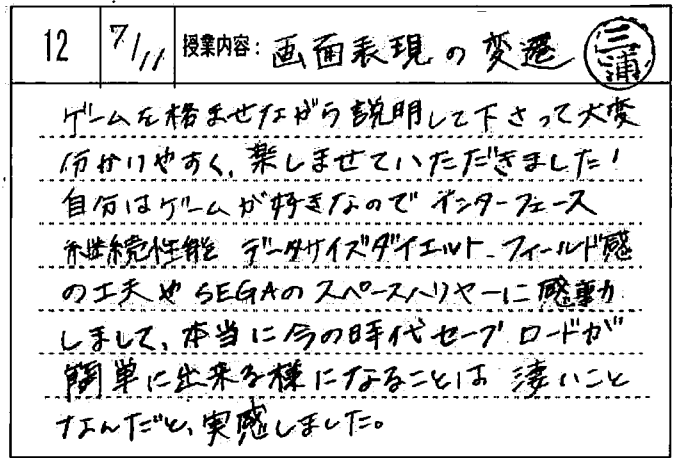 12 7/11 授業内容: 画面表現の変遷 三浦
ゲームを絡ませながら説明して下さって大変
分かりやすく、楽しませていただきました!
自分はゲームが好きなので インターフェース
継続性能 データサイズダイエット、フィールド感
の工夫や SEGAの スペースハリヤーに感動
しまして、本当に今の時代セーブ ロードが
簡単に出来る様になることは 凄いこと
なんだと、実感しました。